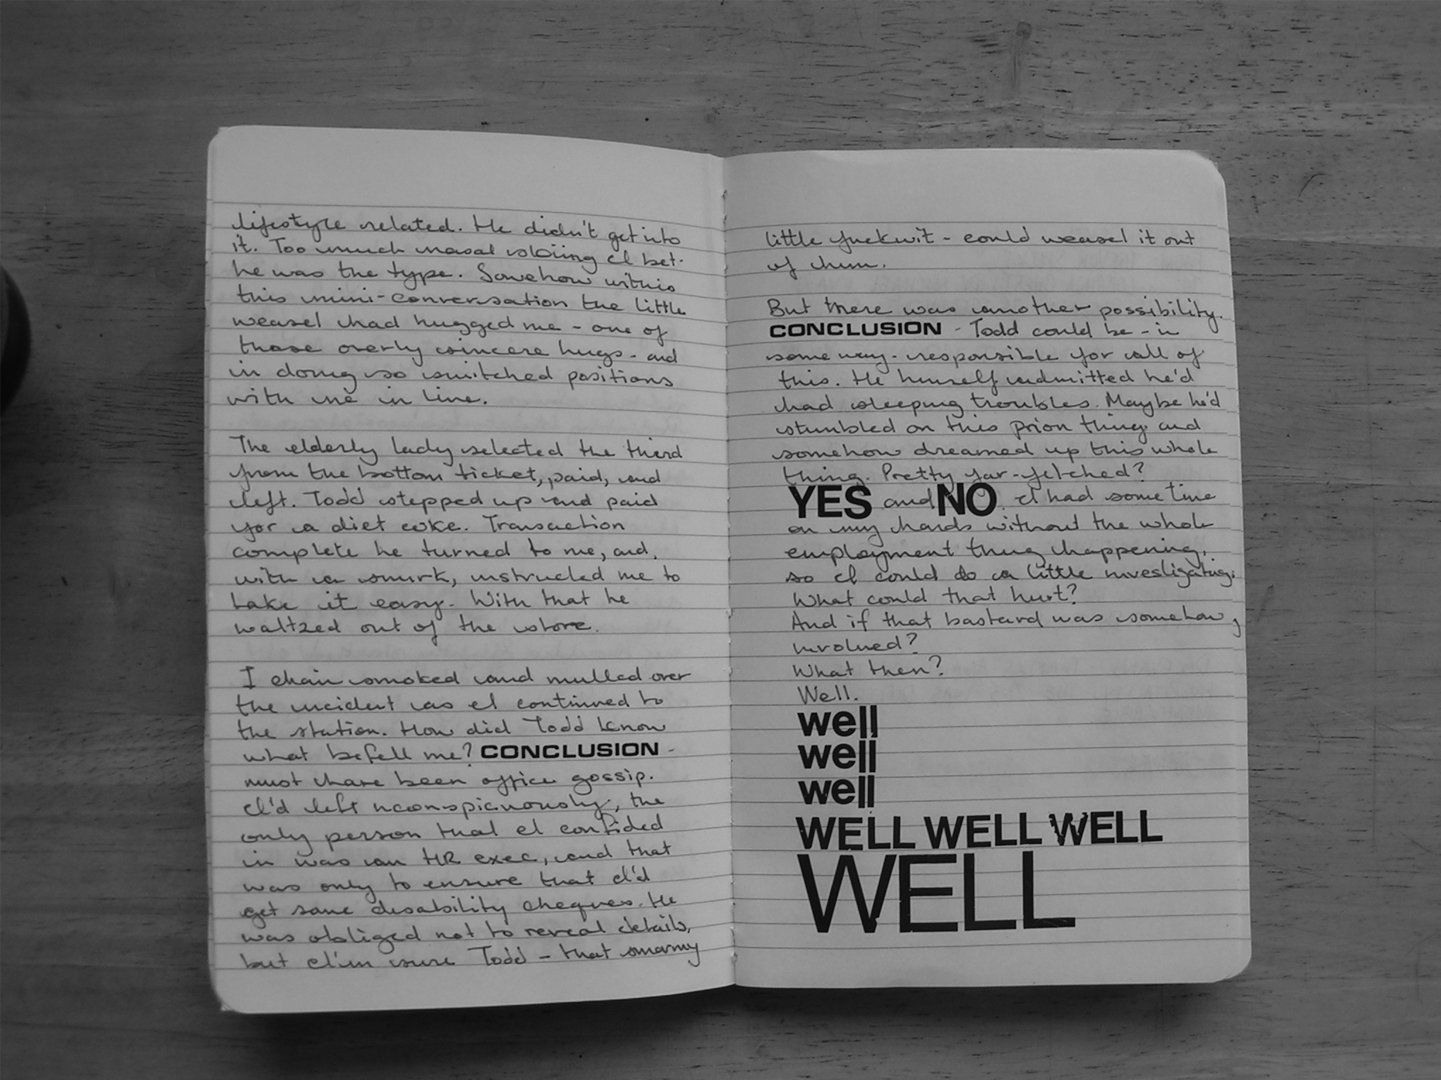 lifestyle related. He didn't get into
it. Too much nasal I bet.
he was the type. Somehow within
this mini-conversation the little
weasel had hugged me - one of
those overly sincere hugs - and
in doing so switched positions
with me in line.
The elderly lady selected the third
from the bottom ticket, paid, and
left. Todd stepped up and paid
for a diet coke. Transaction
complete he turned to me, and,
with a smirk, instructed me to
take it easy. With that he
waltzed out of the store.
I chain smoked and mulled over
the incident as I continued to
the station. How did Todd know
what befell me? CONCLUSION -
must have been office gossip.
I'd left inconspicuously, the
only person that I confided
in was an HR exec, and that
was only to ensure that I'd
get some disability cheques. He
was obliged not to reveal details,
but I'm sure Todd - that smarmy
little fuckwit - could weasel it out
of him.
But there was another possibility.
CONCLUSION - Todd could be - in
some way - responsible for all of
this. He himself admitted he'd
had sleeping troubles. Maybe he'd
stumbled on this prion thing and
somehow dreamed up this whole
thing. Pretty far-fetched?
YES and NO. I had some time
on my hands without the whole
employment thing happening,
so I could do a little investigating.
What could that hurt?
And if that bastard was somehow
involved?
What then?
Well.
well
well
well
WELL WELL WELL
WELL